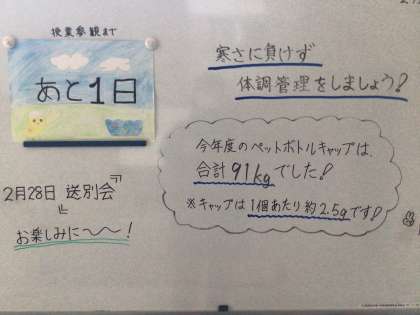 授業参観まで
あと1日
寒さに負けず
体調管理をしましょう!
今年度のペットボトルキャップは、
合計91kgでした!
※キャップは1個あたり約2.5gです!
2月28日『送別会』
お楽しみに〜〜!